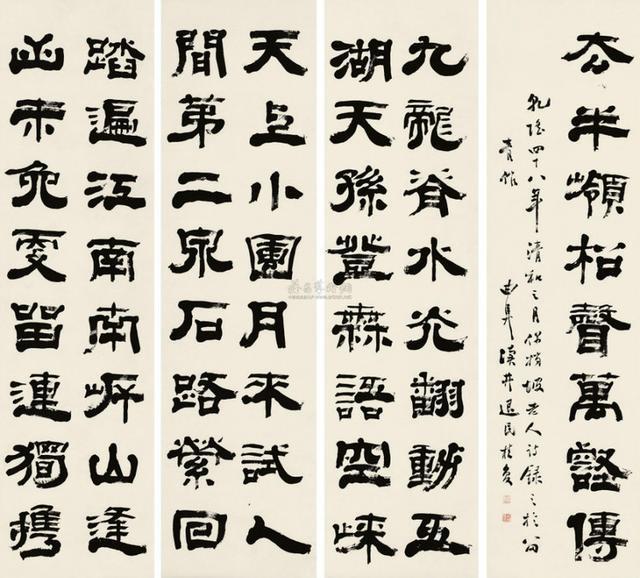 踏遍江南南岸山逢
山未免更留連獨攜
天上小團月來試人
間第二泉石路縈回
九龍脊水光翻動五
湖天孫登無語空歸
去半嶺松聲萬壑傳
乾隆四十八年清和之月偶摘坡老人詩錄之於
曲阜瀆井退民桂馥